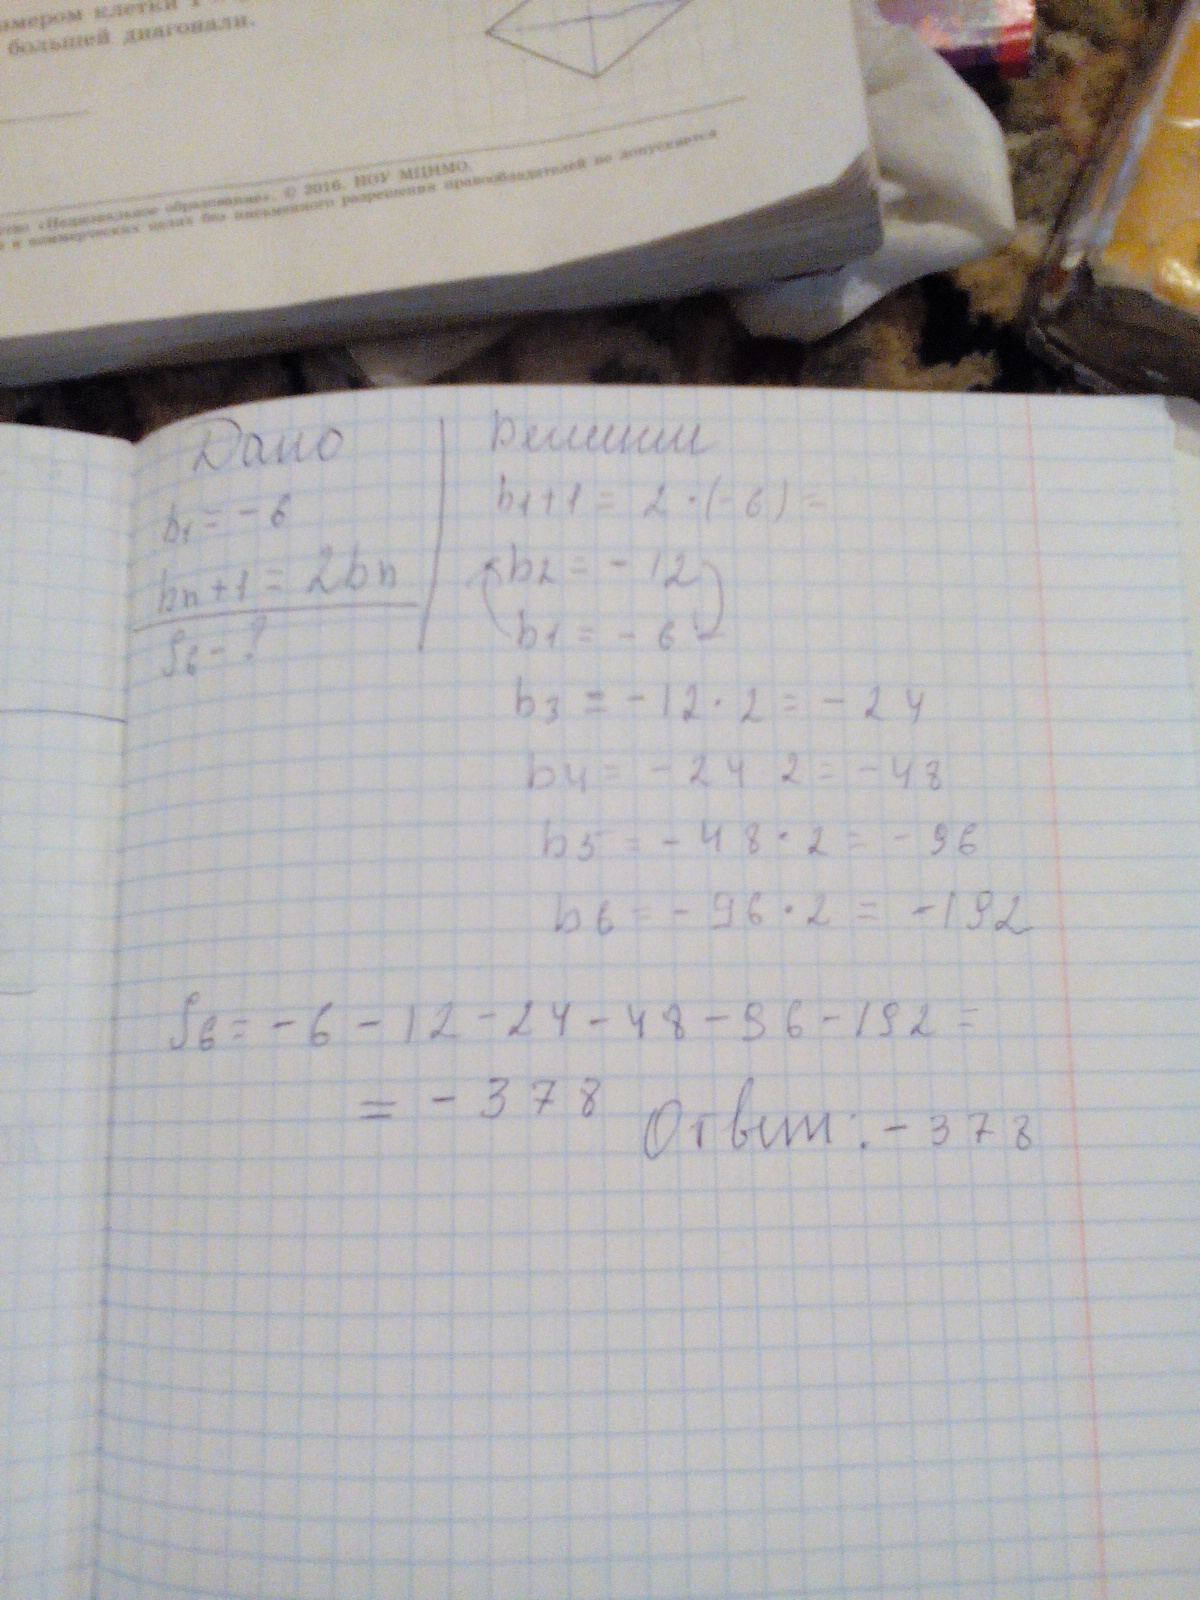 большей диагонали.
«Национальное образование». © 2016. НОУ МЦНМО.
в коммерческих целях без письменного разрешения правообладателей не допускается
Дано
b1 = -6
bn+1 = 2bn
S6 - ?
Решение
b1+1 = 2·(-6) =
b2 = -12
b1 = -6
b3 = -12·2 = -24
b4 = -24·2 = -48
b5 = -48·2 = -96
b6 = -96·2 = -192
S6 = -6-12-24-48-96-192 =
= -378
Ответ: -378